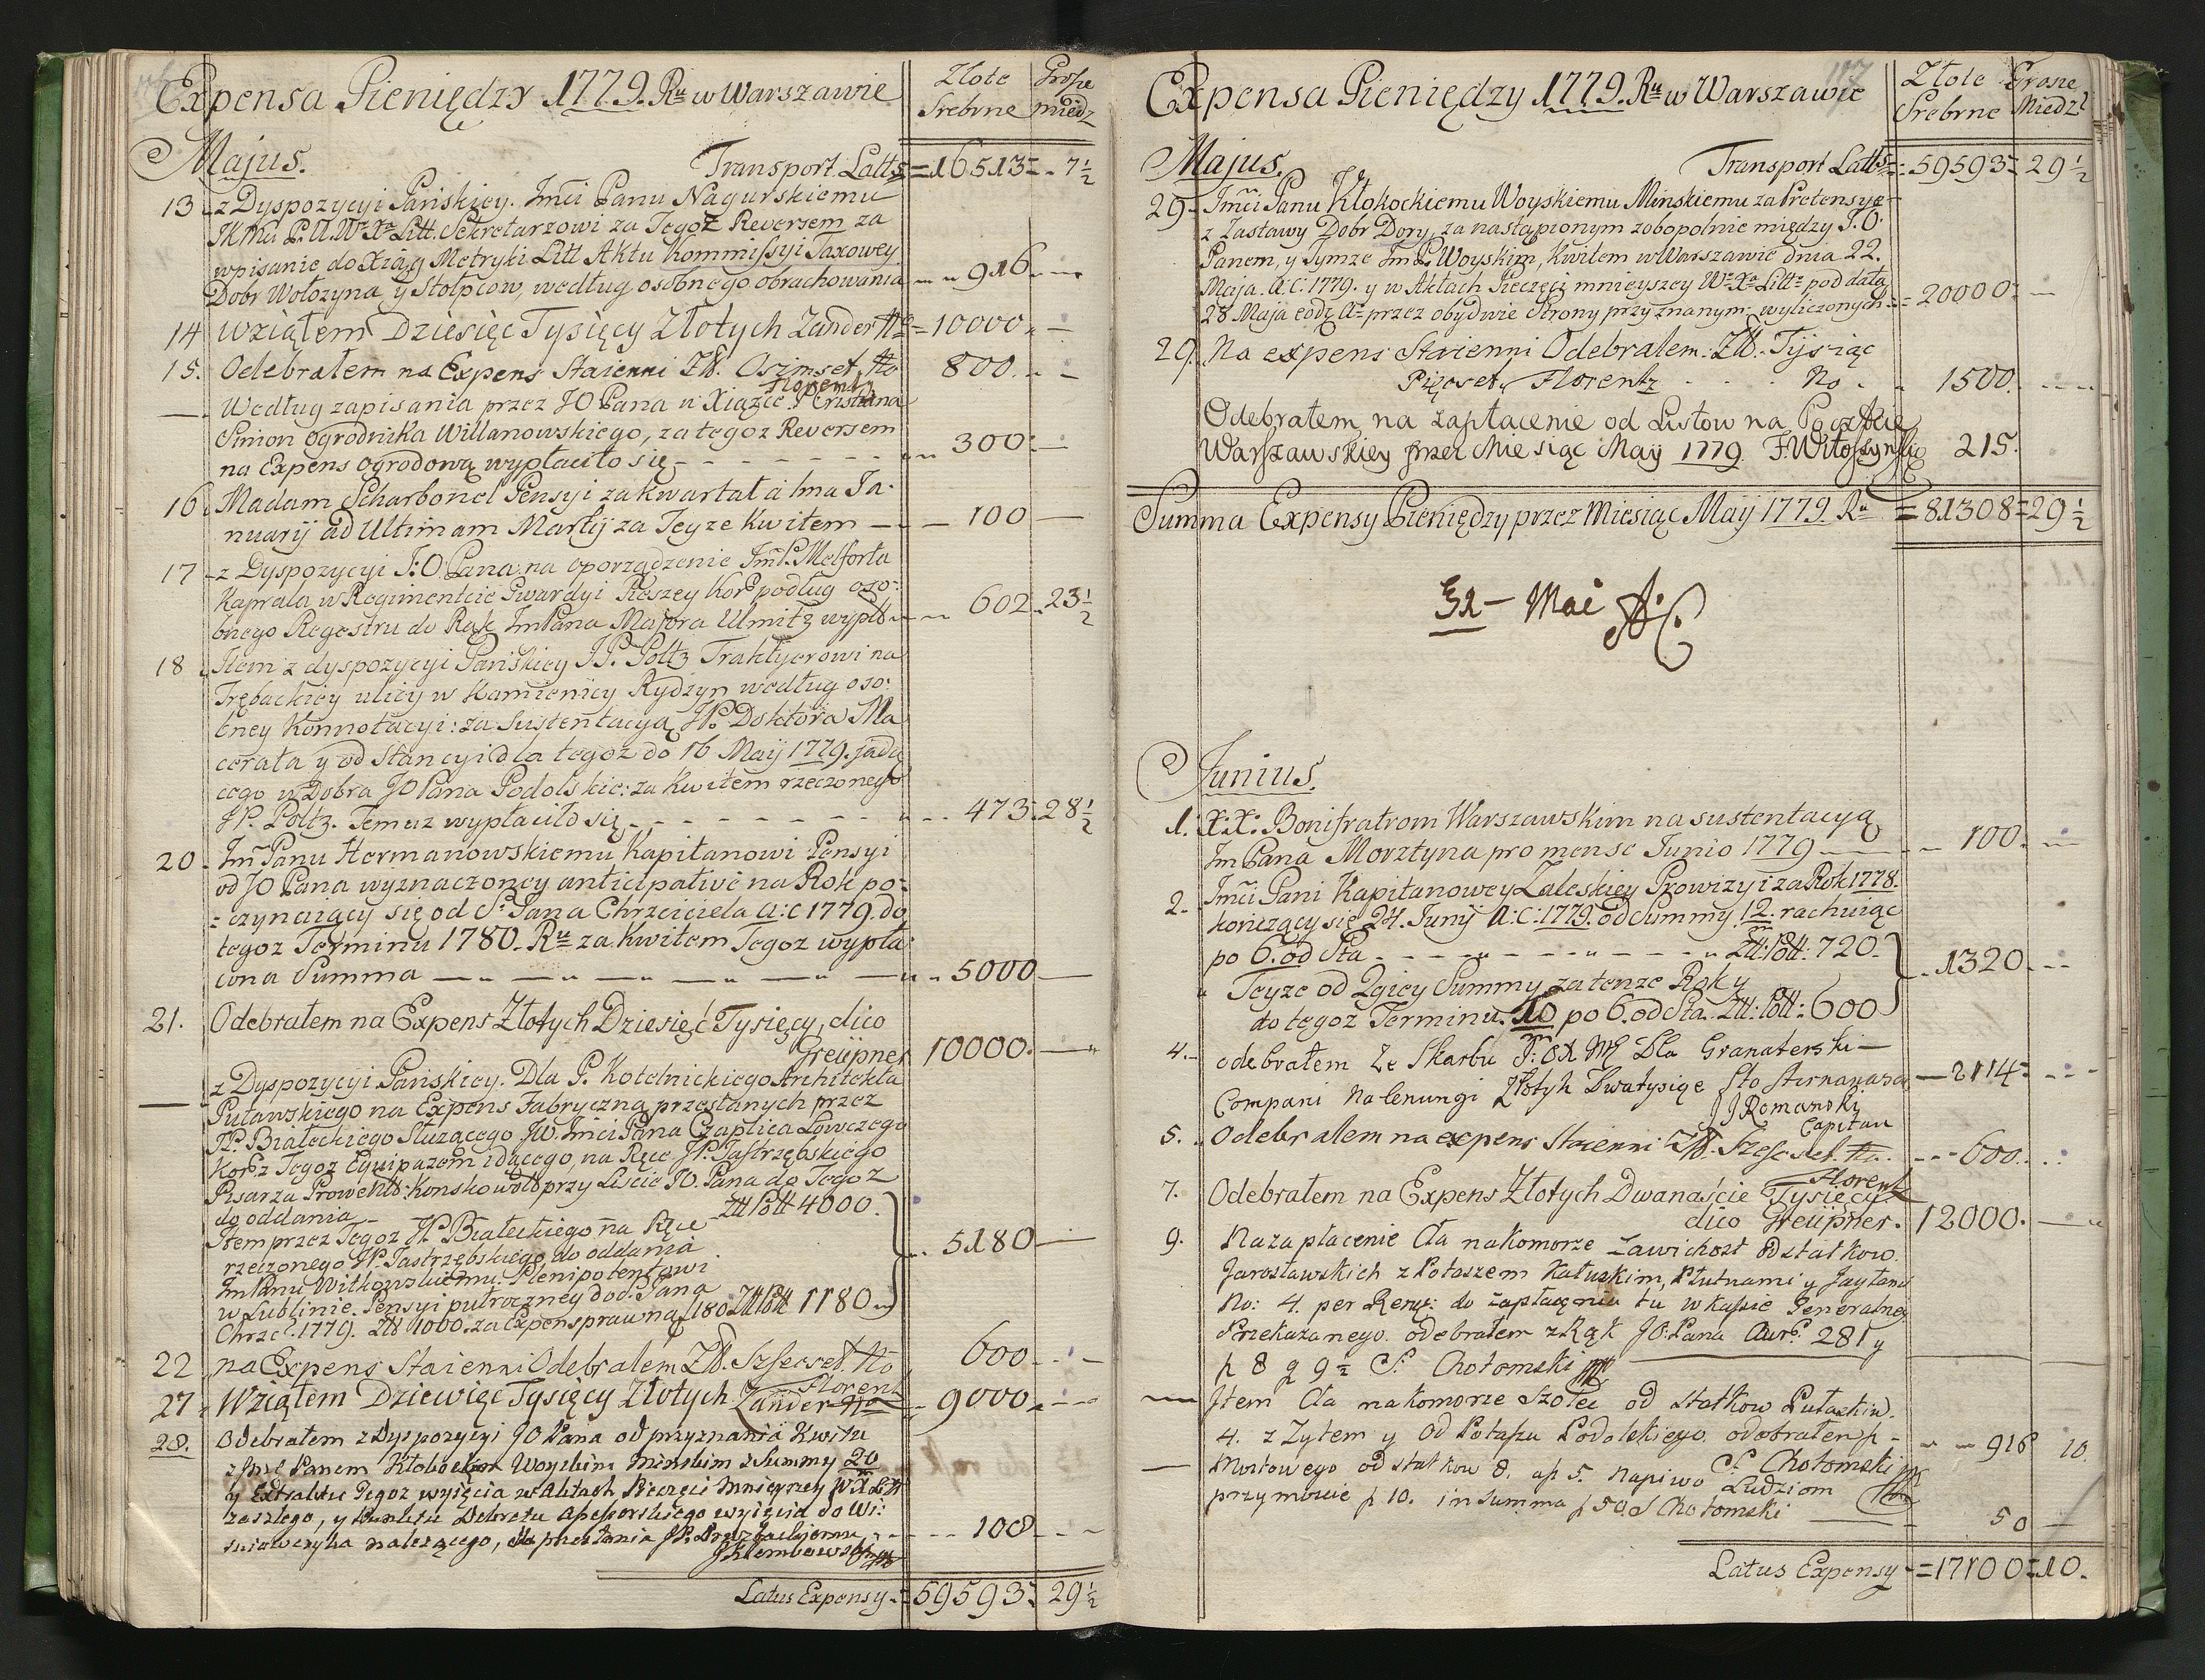 Expensa Pieniędzy 1779. Ru w Warszawie
Złote Grosze
Srebrne miedz
Majus. Transport Latts = 16513 = 7 1/2
13 z Dyspozycyi Pańskiey. Jmći Panu Nagurskiemu
Sekretarzowi za Tegoż Reversem za
wpisanie do Xiąg Metryki Litt Aktu Kommissyi Taxowey
Dobr Wołożyna y Stołpcow, według osobnego obrachowania 916
14 Wziąłem Dziesięć Tysięcy Złotych Zander 10000
15. Odebrałem na Expens Staienni Zł. Osimset No 800
Florentz
Według zapisania przez JO Pana w Xiążce P Cristiana
Simon Ogrodnika Willanowskiego, za tegoz Reversem
na Expens Ogrodową wypłaciło się 300
16 Madam Scharbonel Pensyi za kwartał a 1ma Ja-
nuarij ad Ultimam Martij za Jeyze Kwitem 100
17 z Dyspozycyi J:O: Pana na oporządzenie Jm P. Melforta
Kaprala w Regimencie Gwardyi Pieszey Kor podług oso-
bnego Regestru do Rąk Jm Pana Majora Ulmitz wypłł 602. 23 1/2
18 Item z dyspozycyi Pańskiey JP. Poltz Traktyerowi na
Trębackiey ulicy w Kamienicy Rydzyn według oso-
bney Konnotacyi: za Sustentacyą JP. Doktora Ma
cerata y od Stancyi dla tegoz do 16 Maij 1779. jadą
cego w Dobra JO Pana Podolskie: za Kwitem rzeczonego
JP. Poltz. Temuz wypłaciło się 473. 28 1/2
20. Jm Panu Hermanowskiemu Kapitanowi Pensyi
od JO Pana wyznaczoney anticipative na Rok po-
czynaiący się od S. Jana Chrzciciela a:c 1779. do
tegoz Terminu 1780. Ru za Kwitem Tegoz wypła
cona Summa 5000
21. Odebrałem na Expens Złotych Dziesięć Tysięcy, dico
Greüpner 10000.
z Dyspozycyi Pańskiey. Dla P. Kotelnickiego Architekta
Puławskiego na Expens Fabryczną przesłanych przez
JP. Białeckiego Służącego JW. Jmci Pana Czaplica Łowczego
Kor z Tegoz Equipazem idącego, na Ręce JP. Jastrzębskiego
Pisarza Prowentt: Konskowoll przy Liscie JO. Pana do Tegoz
do oddania Ztt Poll 4000.
Item przez Tegoz JP. Białeckiego na Ręce
rzeczonego JP. Jastrzębskiego do oddania 5180
Jm Panu Witkowskiemu Plenipotentowi
w Lublinie Pensyi pułroczney do d. S. Jana
Chrzc. 1779. Ztt 1000. za Expens prawną 180 Ztt Poll 1180
22 na Expens Staienni Odebrałem Zł. Szescset No 600
Florentz
27 Wziąłem Dziewięc Tysięcy Złotych Zander 9000
28. Odebrałem z Dyspozycyi JO Pana od przyznania Kwitu
z Jmć Panem Kłokockim Woyskim Minskim z Summy 20
y Extraktu Tegoz wyięcia w Aktach Pieczęci Mnieyszey
zaszłego, y Extraktu Dekretu Assessorskiego wyięcia do Wi-
należącego, do przesłania 108
JKłembowski
Latus Expensy = 59593 = 29 1/2
117
Expensa Pieniędzy 1779. Ru w Warszawie
Złote Grosze
Srebrne Miedz
Majus. Transport Latts = 59593 = 29 1/2
29 Jmći Panu Kłokockiemu Woyskiemu Minskiemu za Pretensye
z Zastawy Dobr Dory, za nastąpionym zobopolnie między J.O.
Panem, y Tymze Jm P. Woyskim, Kwitem w Warszawie dnia 22.
Maja. a:c: 1779. y w Aktach Pieczęci mnieyszey Wo Xa Litto pod datą
28 Maja eodem Ao przez obydwie Strony przyznanym wyliczonych 20000
29. Na expens Staienni Odebrałem Zł. Tysiąc
Pięcset, Florentz No 1500.
Odebrałem na zapłacenie od Listow na Poczcie
Warszawskiey przez Miesiąc Maij 1779 F. Witoszynski 215.
Summa Expensy Pieniędzy przez Miesiąc Maij 1779. Ru = 81308 = 29 1/2
32 – Mai AC
Junius.
1. X: X: Bonifratrom Warszawskim na sustentacyą
Jm Pana Morztyna pro mense Junio 1779 100.
2. Jmći Pani Kapitanowey Zaleskiey Prowizyi za Rok 1778.
kończący się 24. Junij A:C: 1779. od Summy 12. rachuiąc
po 6. od Sta Ztt: Poll: 720. 1320
Teyze od 2giey Summy za tenze Rok y
do tegoz Terminu 10 po 6. od Sta. Ztt: Poll: 600
4. odebrałem Ze Skarbu J: OX Mć Dla Granaterski
Compani Na Lenungi Złotych Dwatysiące Sto sternanascie 2114
JJ Romanski
Capitan
5. Odebrałem na expens Staienni Zł. Szescset No. 600
Florentz
7. Odebrałem na Expens Złotych Dwanaście Tysięcy
dico Greüpner. 12000.
9. Na zapłacenie Cła na komorze Zawichost od statkow
Jarosławskich z Potaszem Kałuskim, Płutnami y
No: 4. per Rewe: do zapłacenia tu w kassie Generalney
Przekazanego. odebrałem z Rąk JO: Pana Aur. 281 y
p 8 g 9 1/2 S. Chotomski
Item Cła na komorze Szolec od statkow Puławskich
4. z Zytem y od Potaszu Podolskiego odebrałem p 916 10.
S. Chotomski
Mostowego od statkow 8. ap 5. Na piwo Ludziom
przy mowie p 10. in summa p 50. S Chotomski 50
Latus Expensy = 17100 = 10.